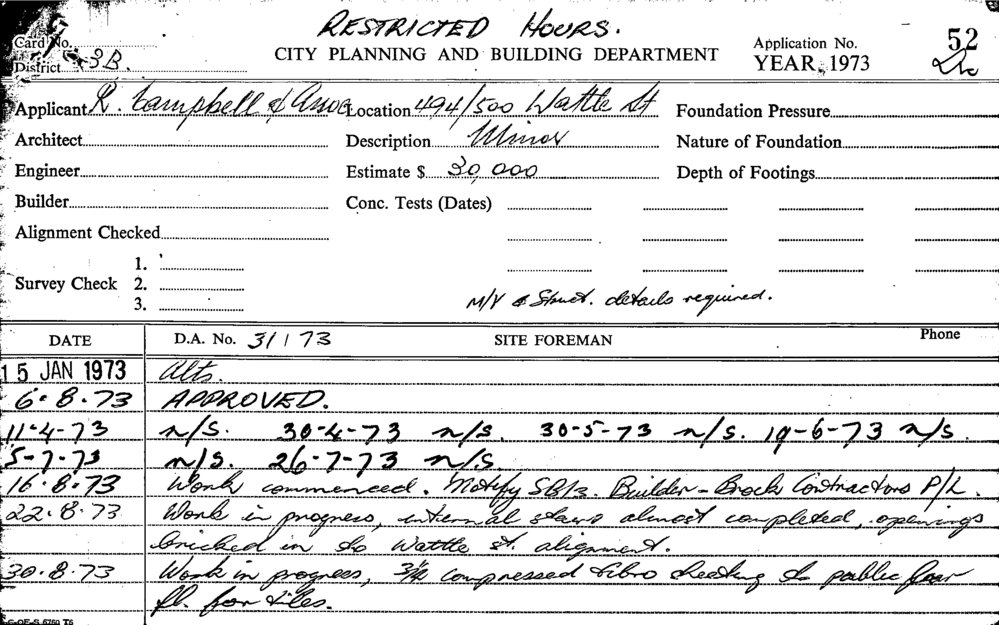 RESTRICTED HOURS.
Card No.
CITY PLANNING AND BUILDING DEPARTMENT
Application No. 52
District 3B.
YEAR, 1973
Applicant R. Campbell & Assoc Location 494/500 Wattle St Foundation Pressure
Architect Description Minor Nature of Foundation
Engineer Estimate $ 30,000 Depth of Footings
Builder Conc. Tests (Dates)
Alignment Checked
1.
Survey Check 2.
3. M/V & Struct. details required.
DATE D.A. No. 31/73 SITE FOREMAN Phone
15 JAN 1973 Alts.
6.8.73 APPROVED.
11-4-73 n/s. 30-4-73 n/s. 30-5-73 n/s. 19-6-73 n/s.
5-7-73 n/s. 26-7-73 n/s.
16.8.73 Work commenced. Notify SB/3. Builder - Brock Contractors P/L.
22.8.73 Work in progress, internal stairs almost completed, openings
bricked in to Wattle St. alignment.
30.8.73 Work in progress, 3/4 compressed fibro sheeting to public
fl. for tiles.